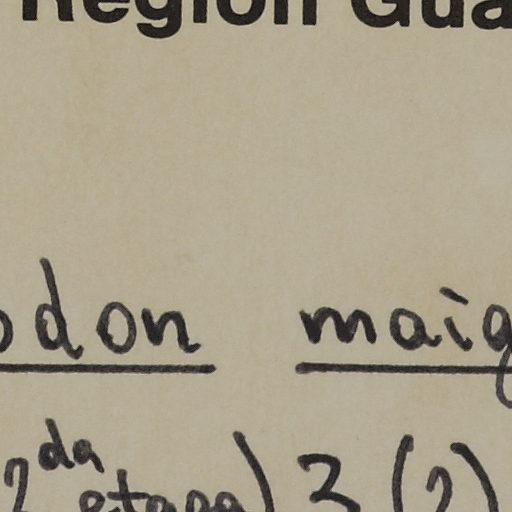 Region Gua
odon maig
2da etapa) 3 (2)